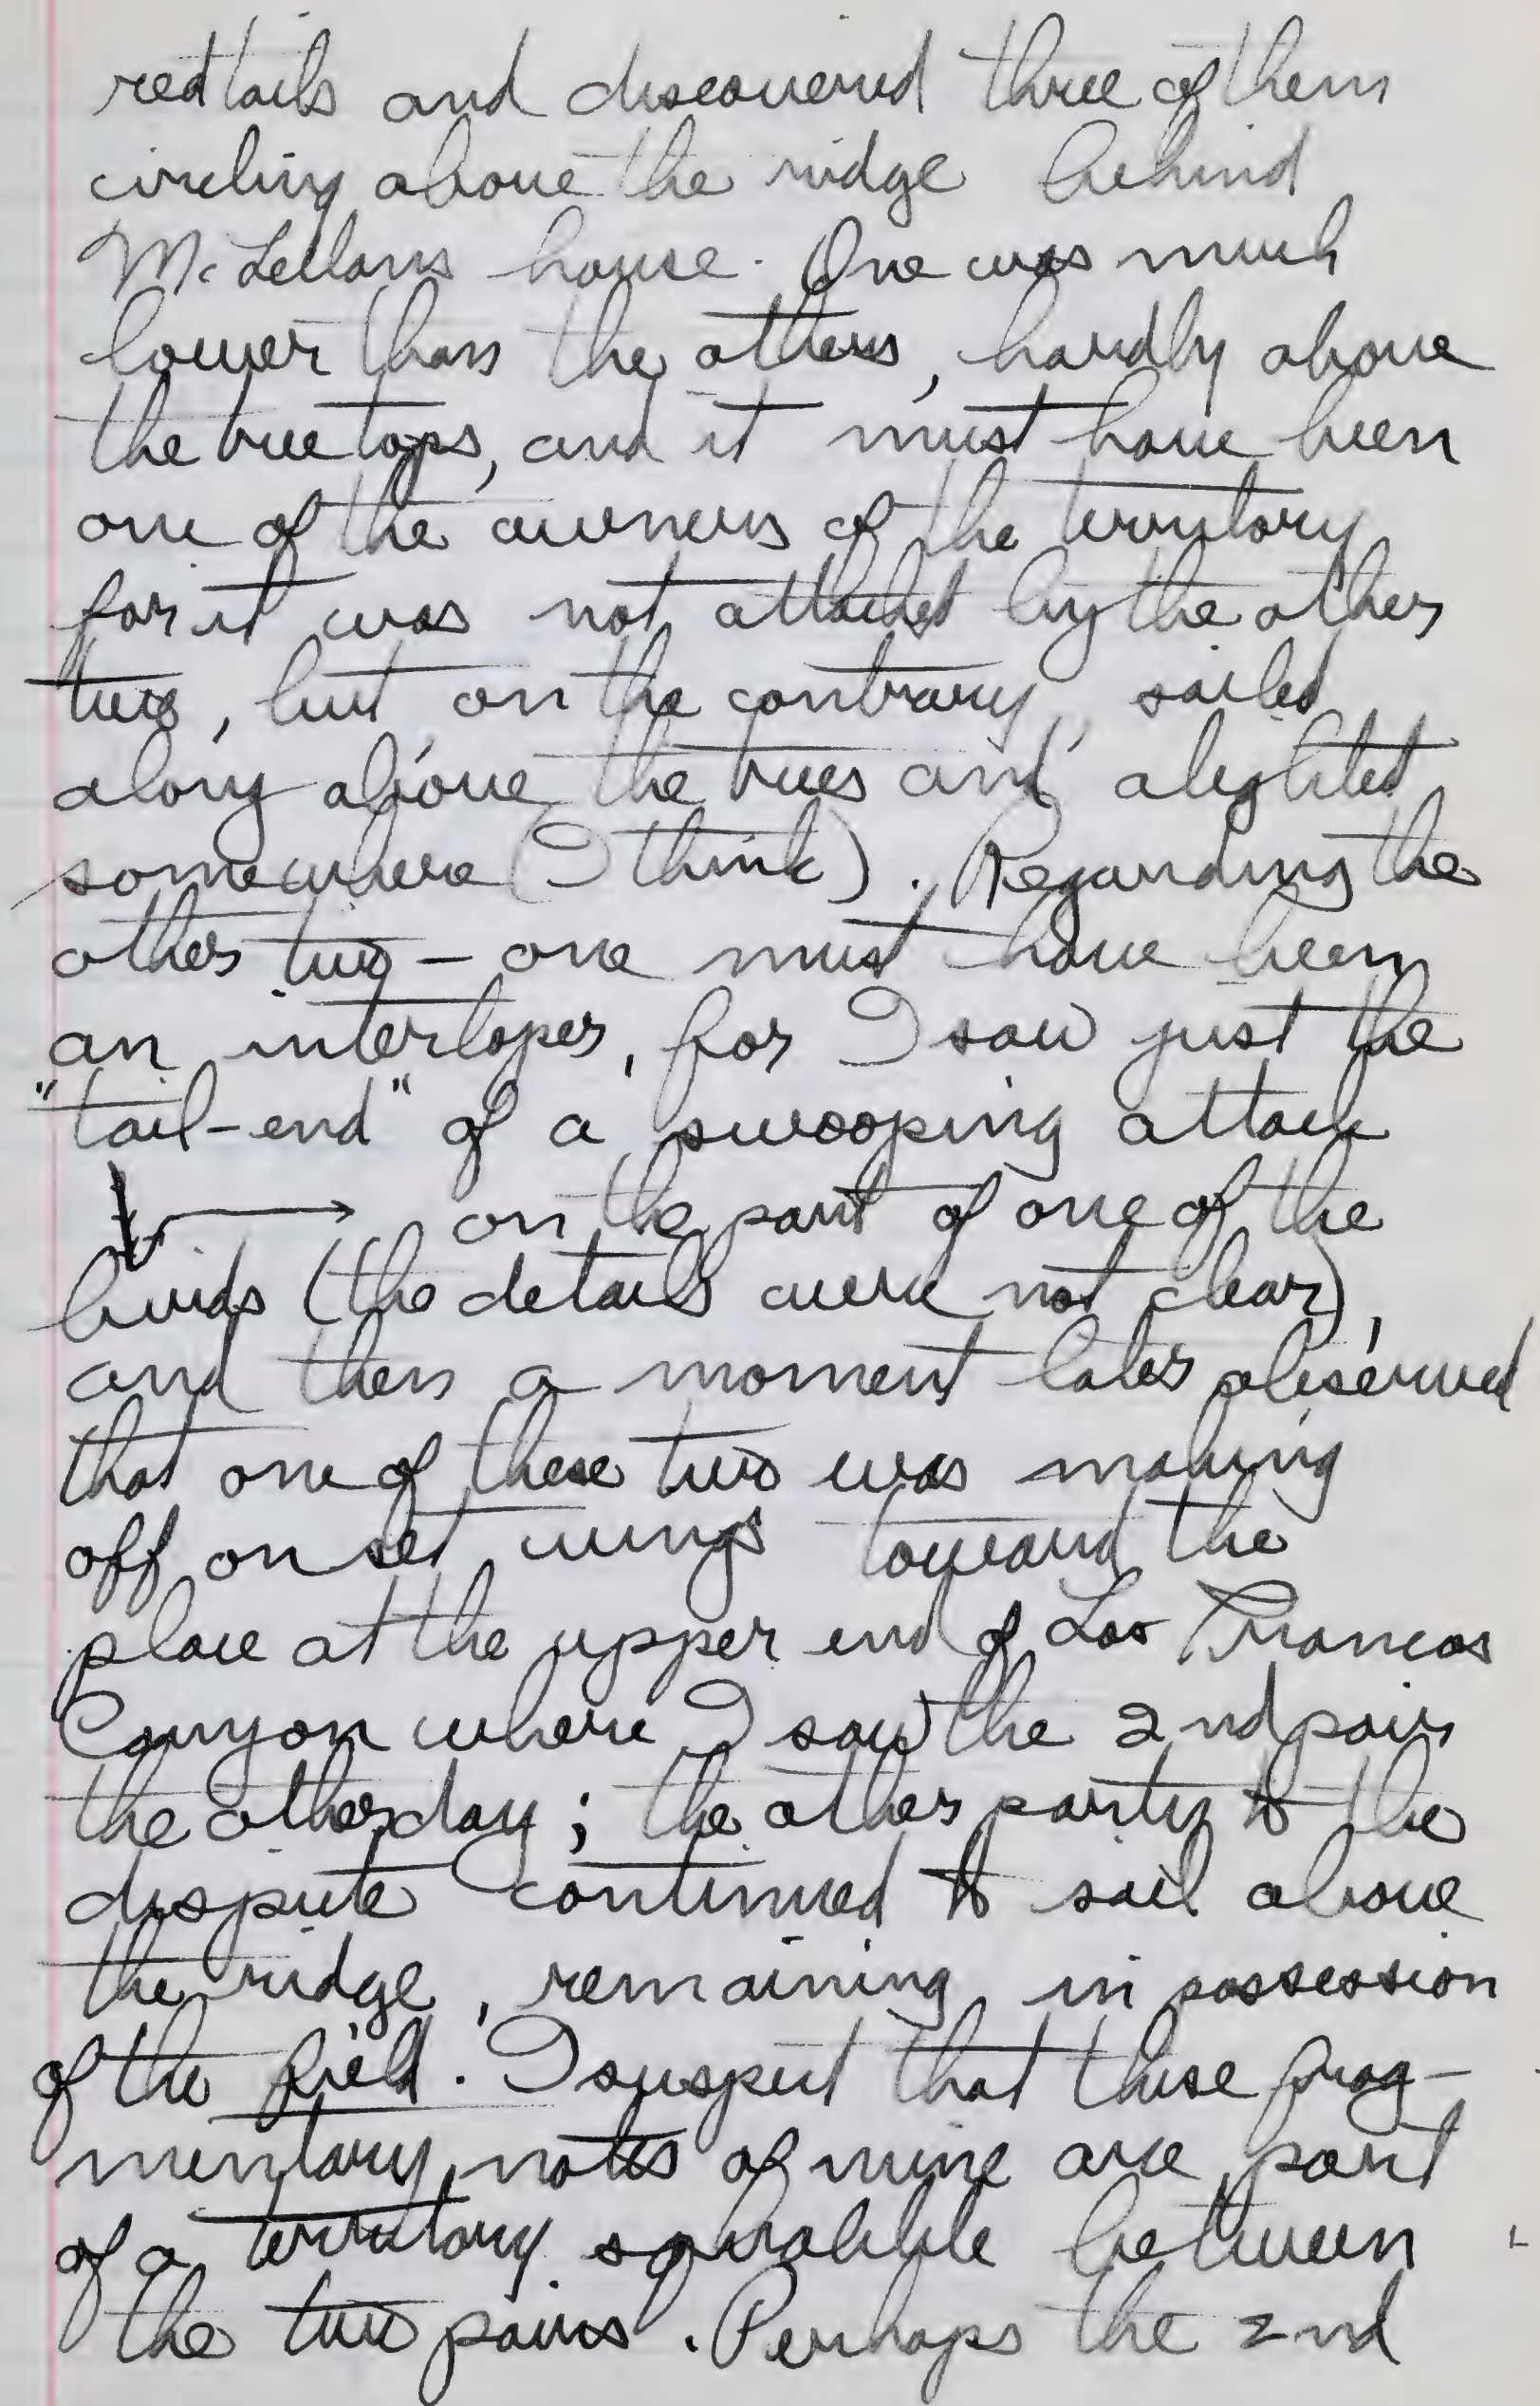 redtails and discovered three of them
circling above the ridge behind
McLellans house. One was much
lower than the others, hardly above
the tree tops, and it must have been
one of the owners of the territory
for it was not attacked by the other
two, but on the contrary, sailed
along above the trees and alighted
somewhere (I think). Regarding the
other two – one must have been
an interloper, for I saw just the
"tail-end" of a swooping attack
→ on the part of one of the
birds (the details were not clear),
and then a moment later observed
that one of these two was making
off on set wings toward the
place at the upper end of Los Trancos
Canyon where I saw the 2nd pair
the other day; the other party to the
dispute continued to sail above
the ridge, remaining in possession
of the field. I suspect that these frag-
mentary notes of mine are part
of a territory squabble between
the two pairs. Perhaps the 2nd